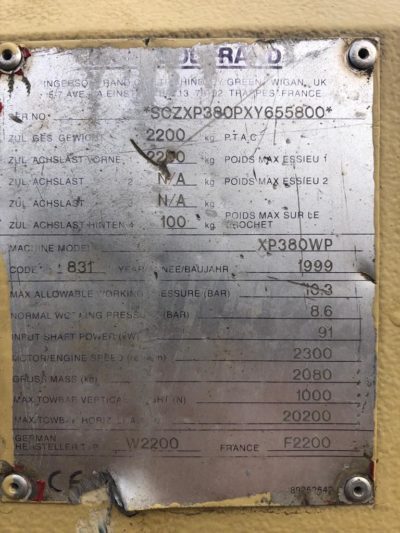 RAND
INGERSOLL-RAND GREEN, WIGAN, UK
TRAPPES, FRANCE
SER NO *SCZXP380PXY655800*
ZUL GES GEWICHT 2200 kg P.T.A.C.
ZUL ACHSLAST VORNE kg POIDS MAX ESSIEU 1
ZUL ACHSLAST 2 N/A kg POIDS MAX ESSIEU 2
ZUL ACHSLAST 3 N/A kg
ZUL ACHSLAST HINTEN 4 100 kg POIDS MAX SUR LE CROCHET
MACHINE MODEL XP380WP
CODE 831 YEAR/ANNEE/BAUJAHR 1999
MAX ALLOWABLE WORKING PRESSURE (BAR) 10.3
NORMAL WORKING PRESSURE (BAR) 8.6
INPUT SHAFT POWER (kW) 91
MOTOR/ENGINE SPEED 2300
GROSS MASS (kg) 2080
MAX.TOWBAR VERTICAL (N) 1000
MAX.TOWBAR (N) 20200
GERMAN
HERSTELLER TYP W2200 FRANCE F2200
CE